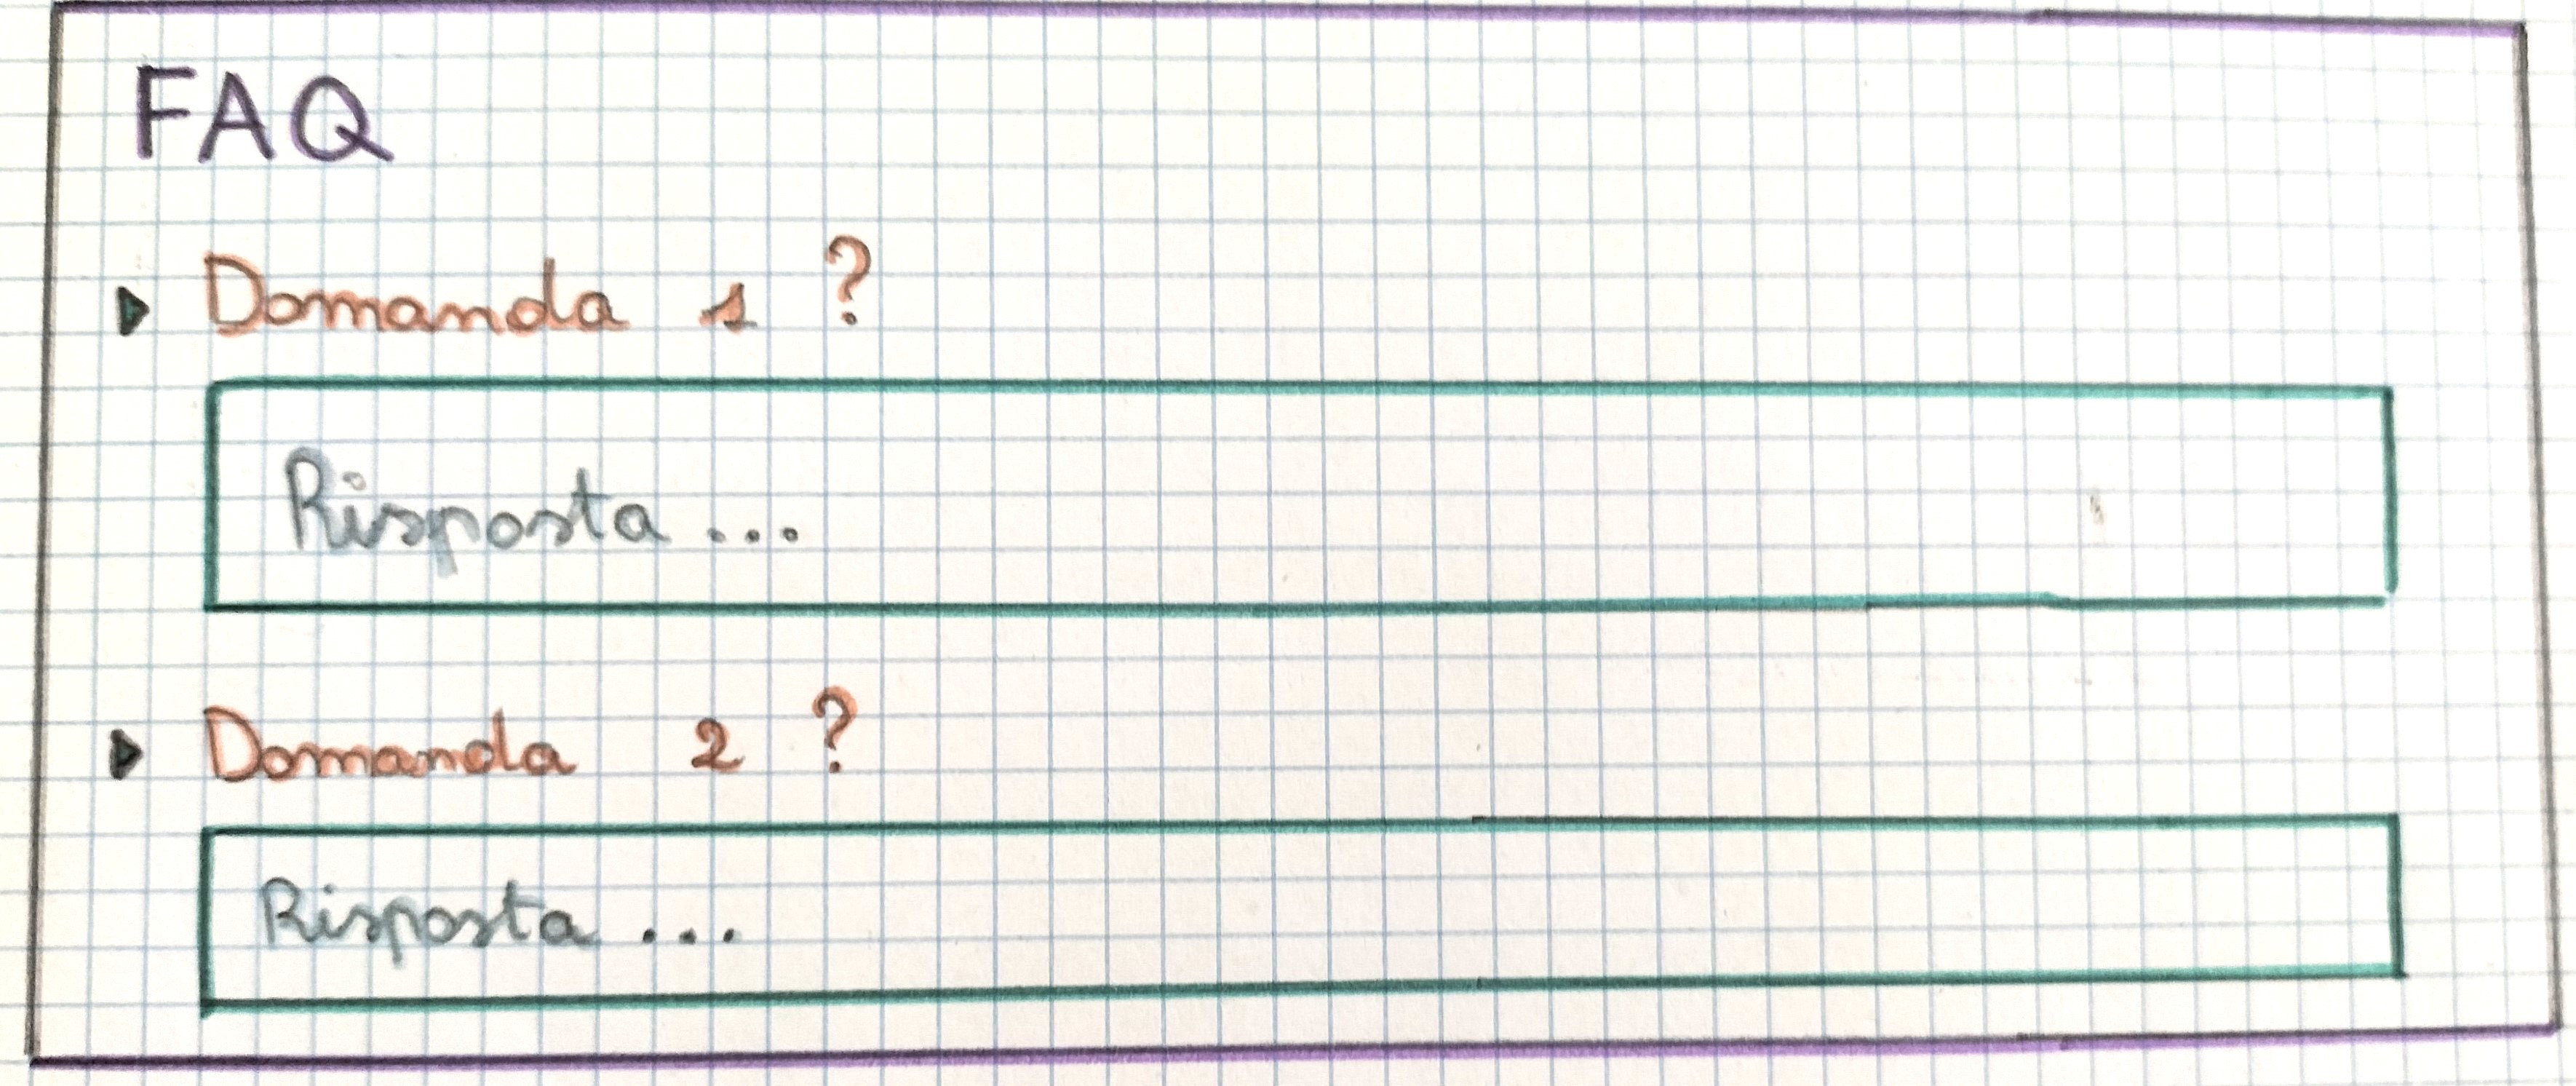 FAQ
Domanda 1 ?
Risposta ...
Domanda 2 ?
Risposta ...